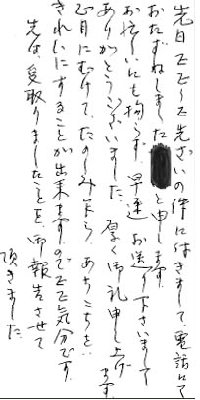 先日はビーズ洗ざいの件に付きまして、電話にて
おたずねしました と申します。
お忙しいにも拘らず早速お送り下さいまして
ありがとうございました。厚く御礼申し上げます
正月にむけて、たのしみ乍ら、あちこちを
きれいにすることが出来ますので 気分です。
先は、受取りましたことを、御報告させて
頂きました。